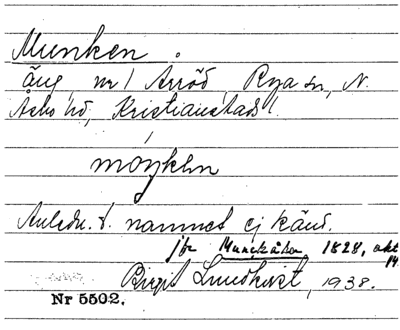 Munken.
äng, nr 1 Arröd, Rya sn, N.
Åsbo hd, Kristianstads l.
Anledn. t. namnet ej känd.
jfr 1828, akt
14
Birgit Lundkvist, 1938.
Nr 5502.